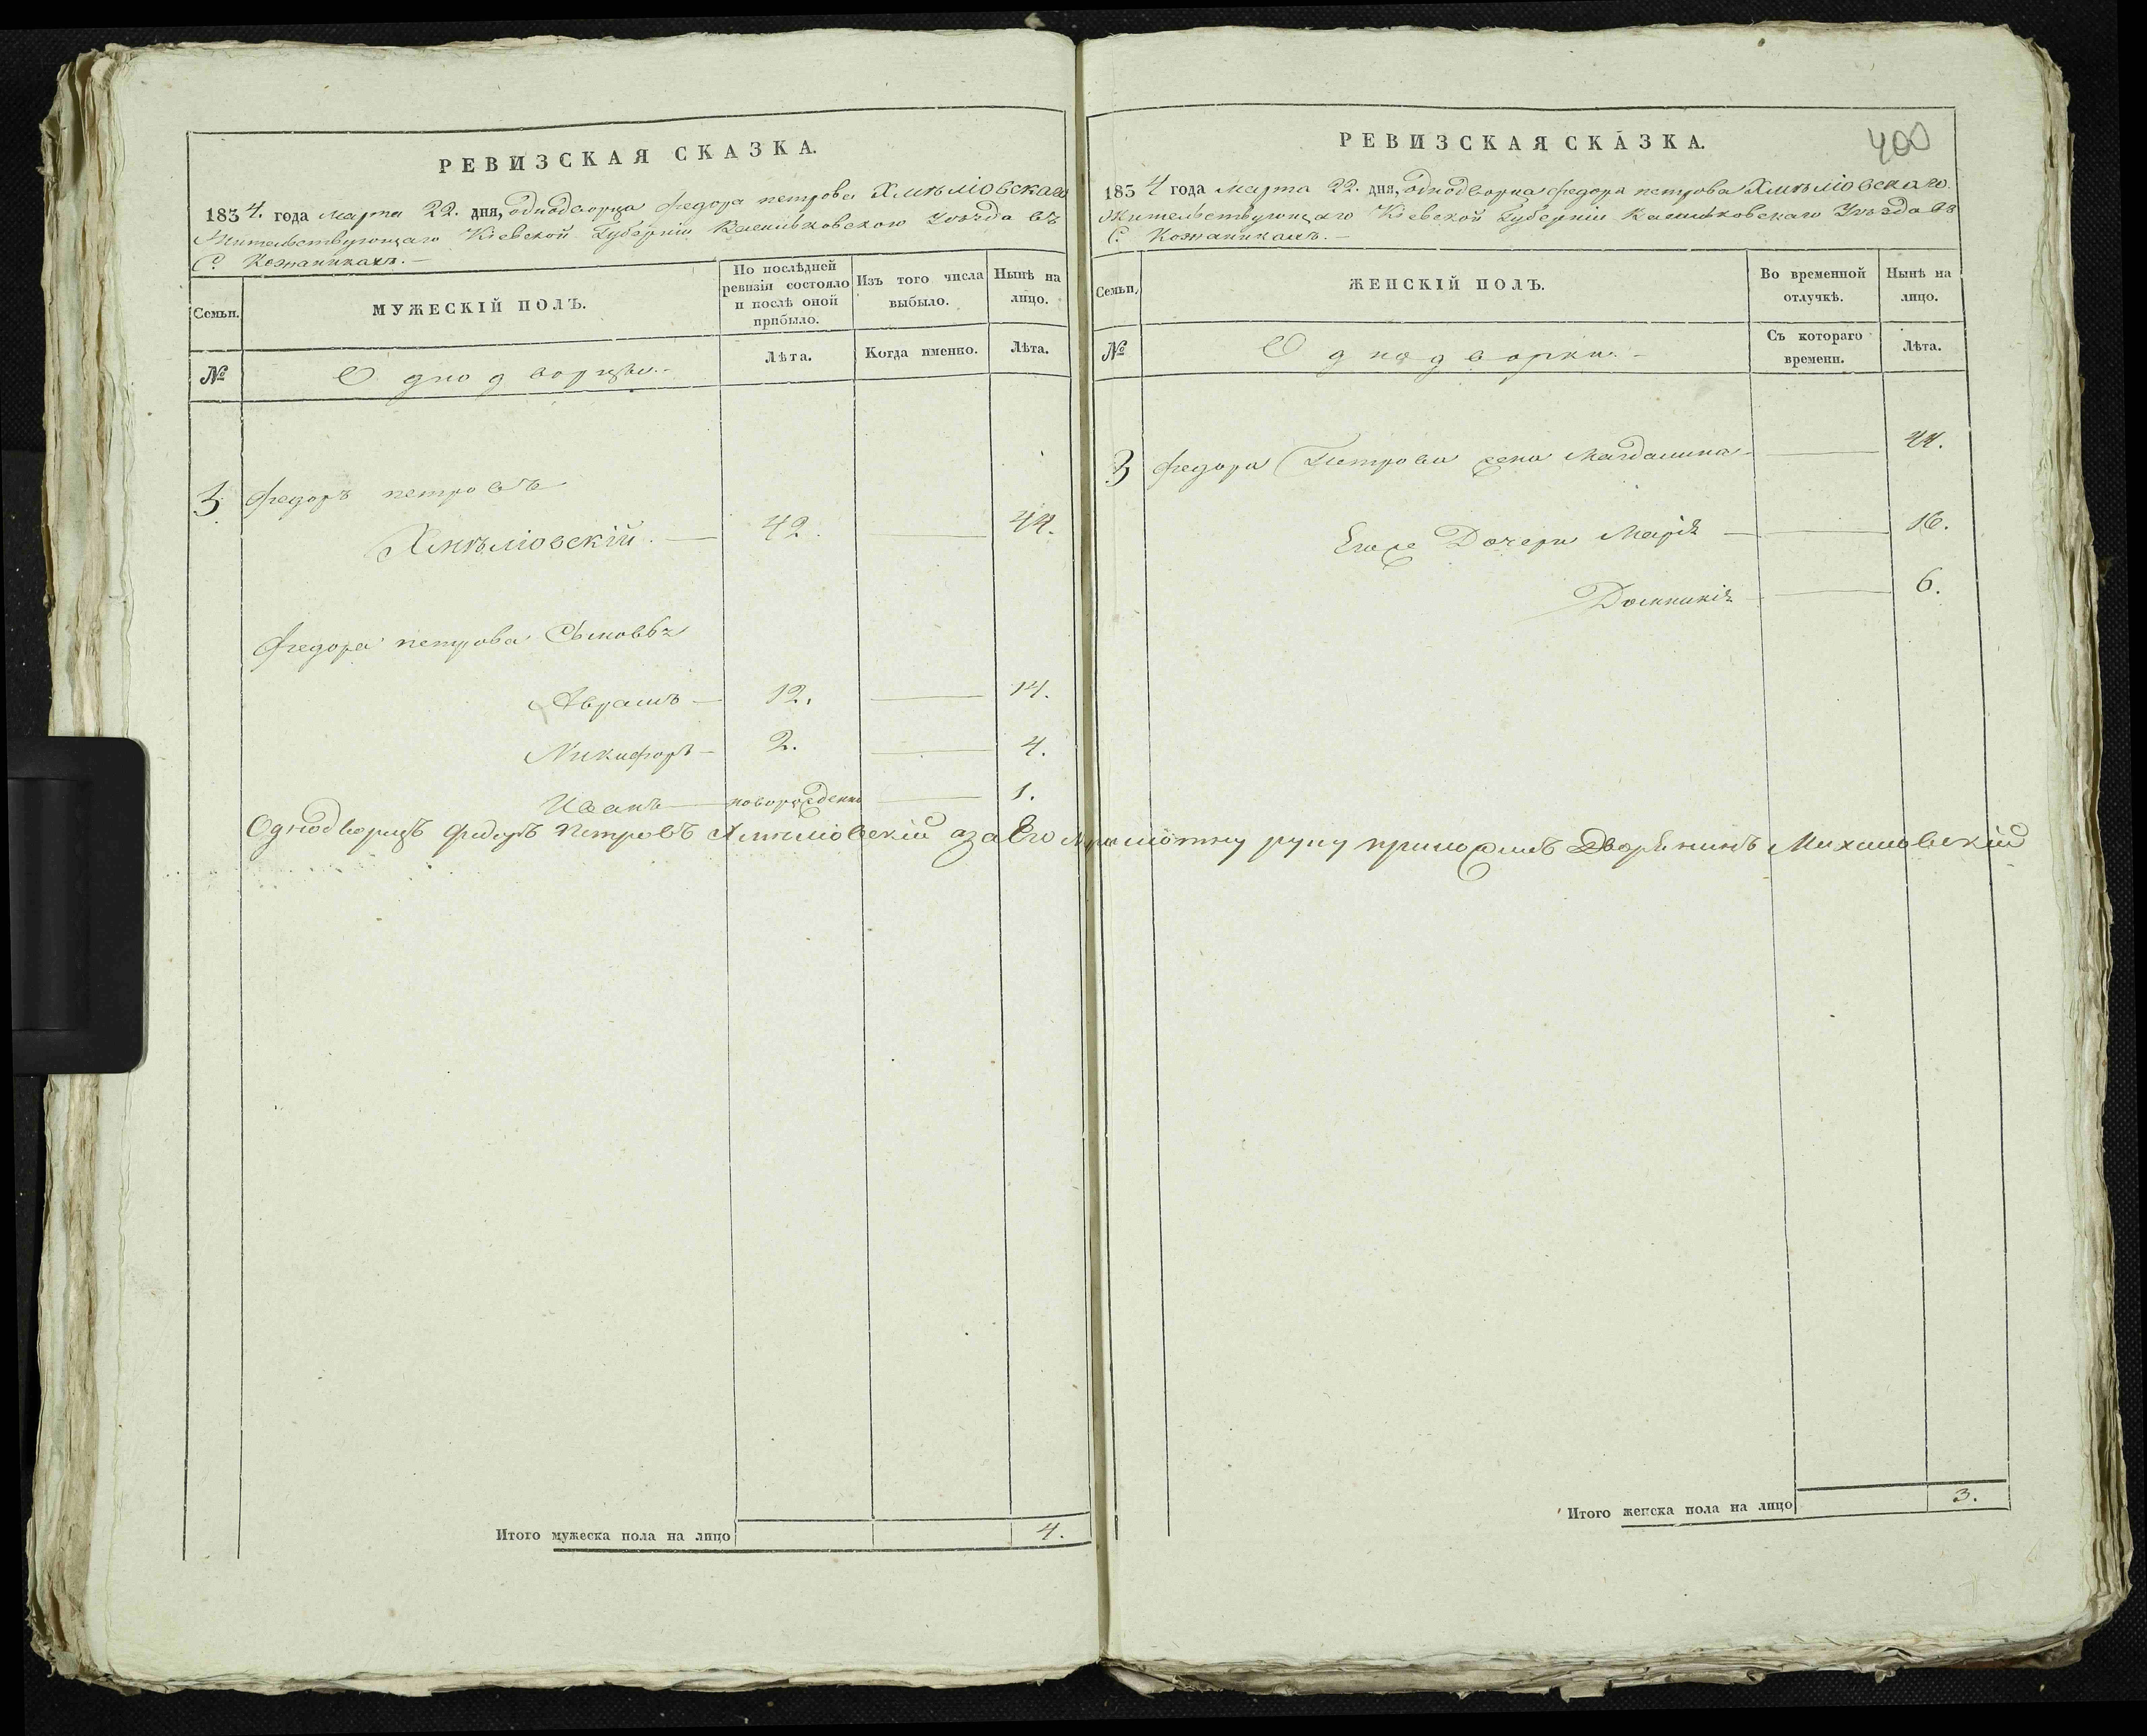 РЕВИЗСКАЯ СКАЗКА.
1834. года марта 22. дня, однодворца Федора петрова Хмѣлiовскаго
Жительствующаго Кіевской Губерніи Васильковского Уѣзда въ
С. Кожаникахъ. —
Семьи.
МУЖЕСКІЙ ПОЛЪ.
По послѣдней ревизіи состояло и послѣ оной прибыло.
Изъ того числа выбыло.
Нынѣ на лицо.
№
Однодворцы.
Лѣта.
Когда именно.
Лѣта.
3 Федоръ петровъ
Хмѣлiовскій. — 42. — 44.
Федора петрова Сыновья
Аврамъ — 12. — 14.
Никифоръ — 2. — 4.
Иванъ — новорожденъ — 1.
Однодворецъ Федоръ Петровъ Хмѣлiовскій а за Его руку приложилъ Дворянинъ
Итого мужеска пола на лицо 4.
РЕВИЗСКАЯ СКАЗКА.
400
1834 года марта 22. дня, однодворца Федора петрова Хмѣлiовскаго.
Жительствующаго Кіевской Губерніи Васильковскаго Уѣзда въ
С. Кожаникахъ. —
Семьи.
ЖЕНСКІЙ ПОЛЪ.
Во временной отлучкѣ.
Нынѣ на лицо.
№
Однодворки. —
Съ котораго времени.
Лѣта.
3 Федора Петрова жена Магдалина — 44.
Егоже Дочери Марія — 16.
Домникія — 6.
Итого женска пола на лицо 3.